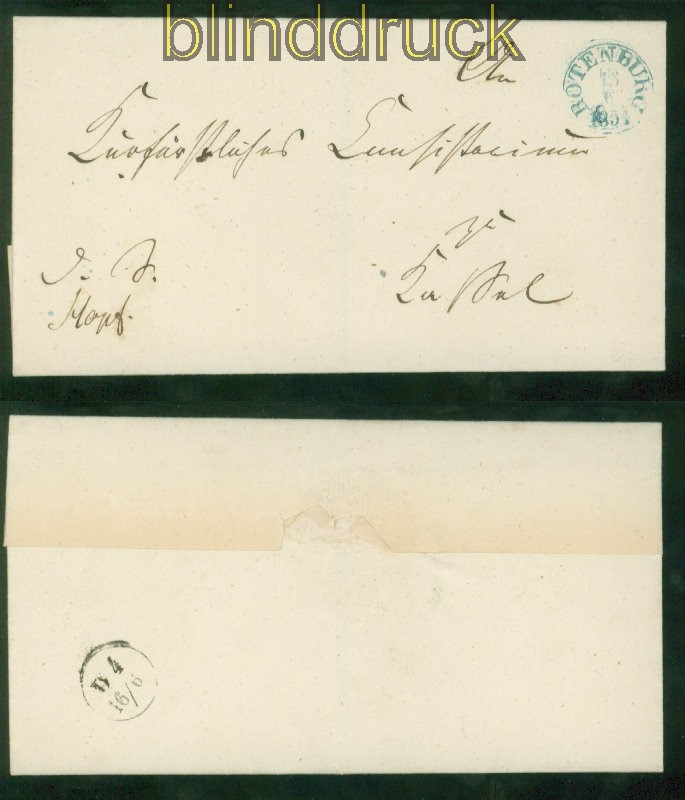 blinddruck
An
ROTENBURG
1851
Kurfürstliches Consistorium
zu
Kassel
d. S.
Hopf.
B 4
16/6